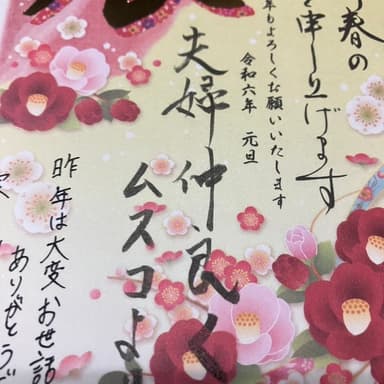 春の
申し上げます
年もよろしくお願いいたします
令和六年 元旦
夫婦仲良く
ムスコよ
昨年は大変お世話
ありがとうご